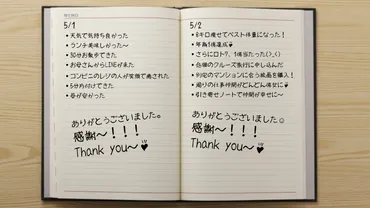 MEMO
5/1
• 天気で気持ち良かった
• ランチ美味しかった〜
• 30分お散歩できた
• お母さんからLINEが来た
• コンビニのレジの人が笑顔で癒された
• 5分片付けできた
• 母が安かった
ありがとうございました。
感謝〜！！！
Thank you〜♥
5/2
• 8キロ痩せてベスト体重になった！
• 年商1億達成♥
• さらにロト7、1億当たった(>_<)
• 念願のクルーズ旅行に申し込んだ
• 別宅のマンションに合う絵画を購入！
• 周りの仕事仲間がどんどん彼女に♥
• 引き寄せノートで仲間が幸せに〜
ありがとうございました☺
感謝〜！！！
Thank you〜♥